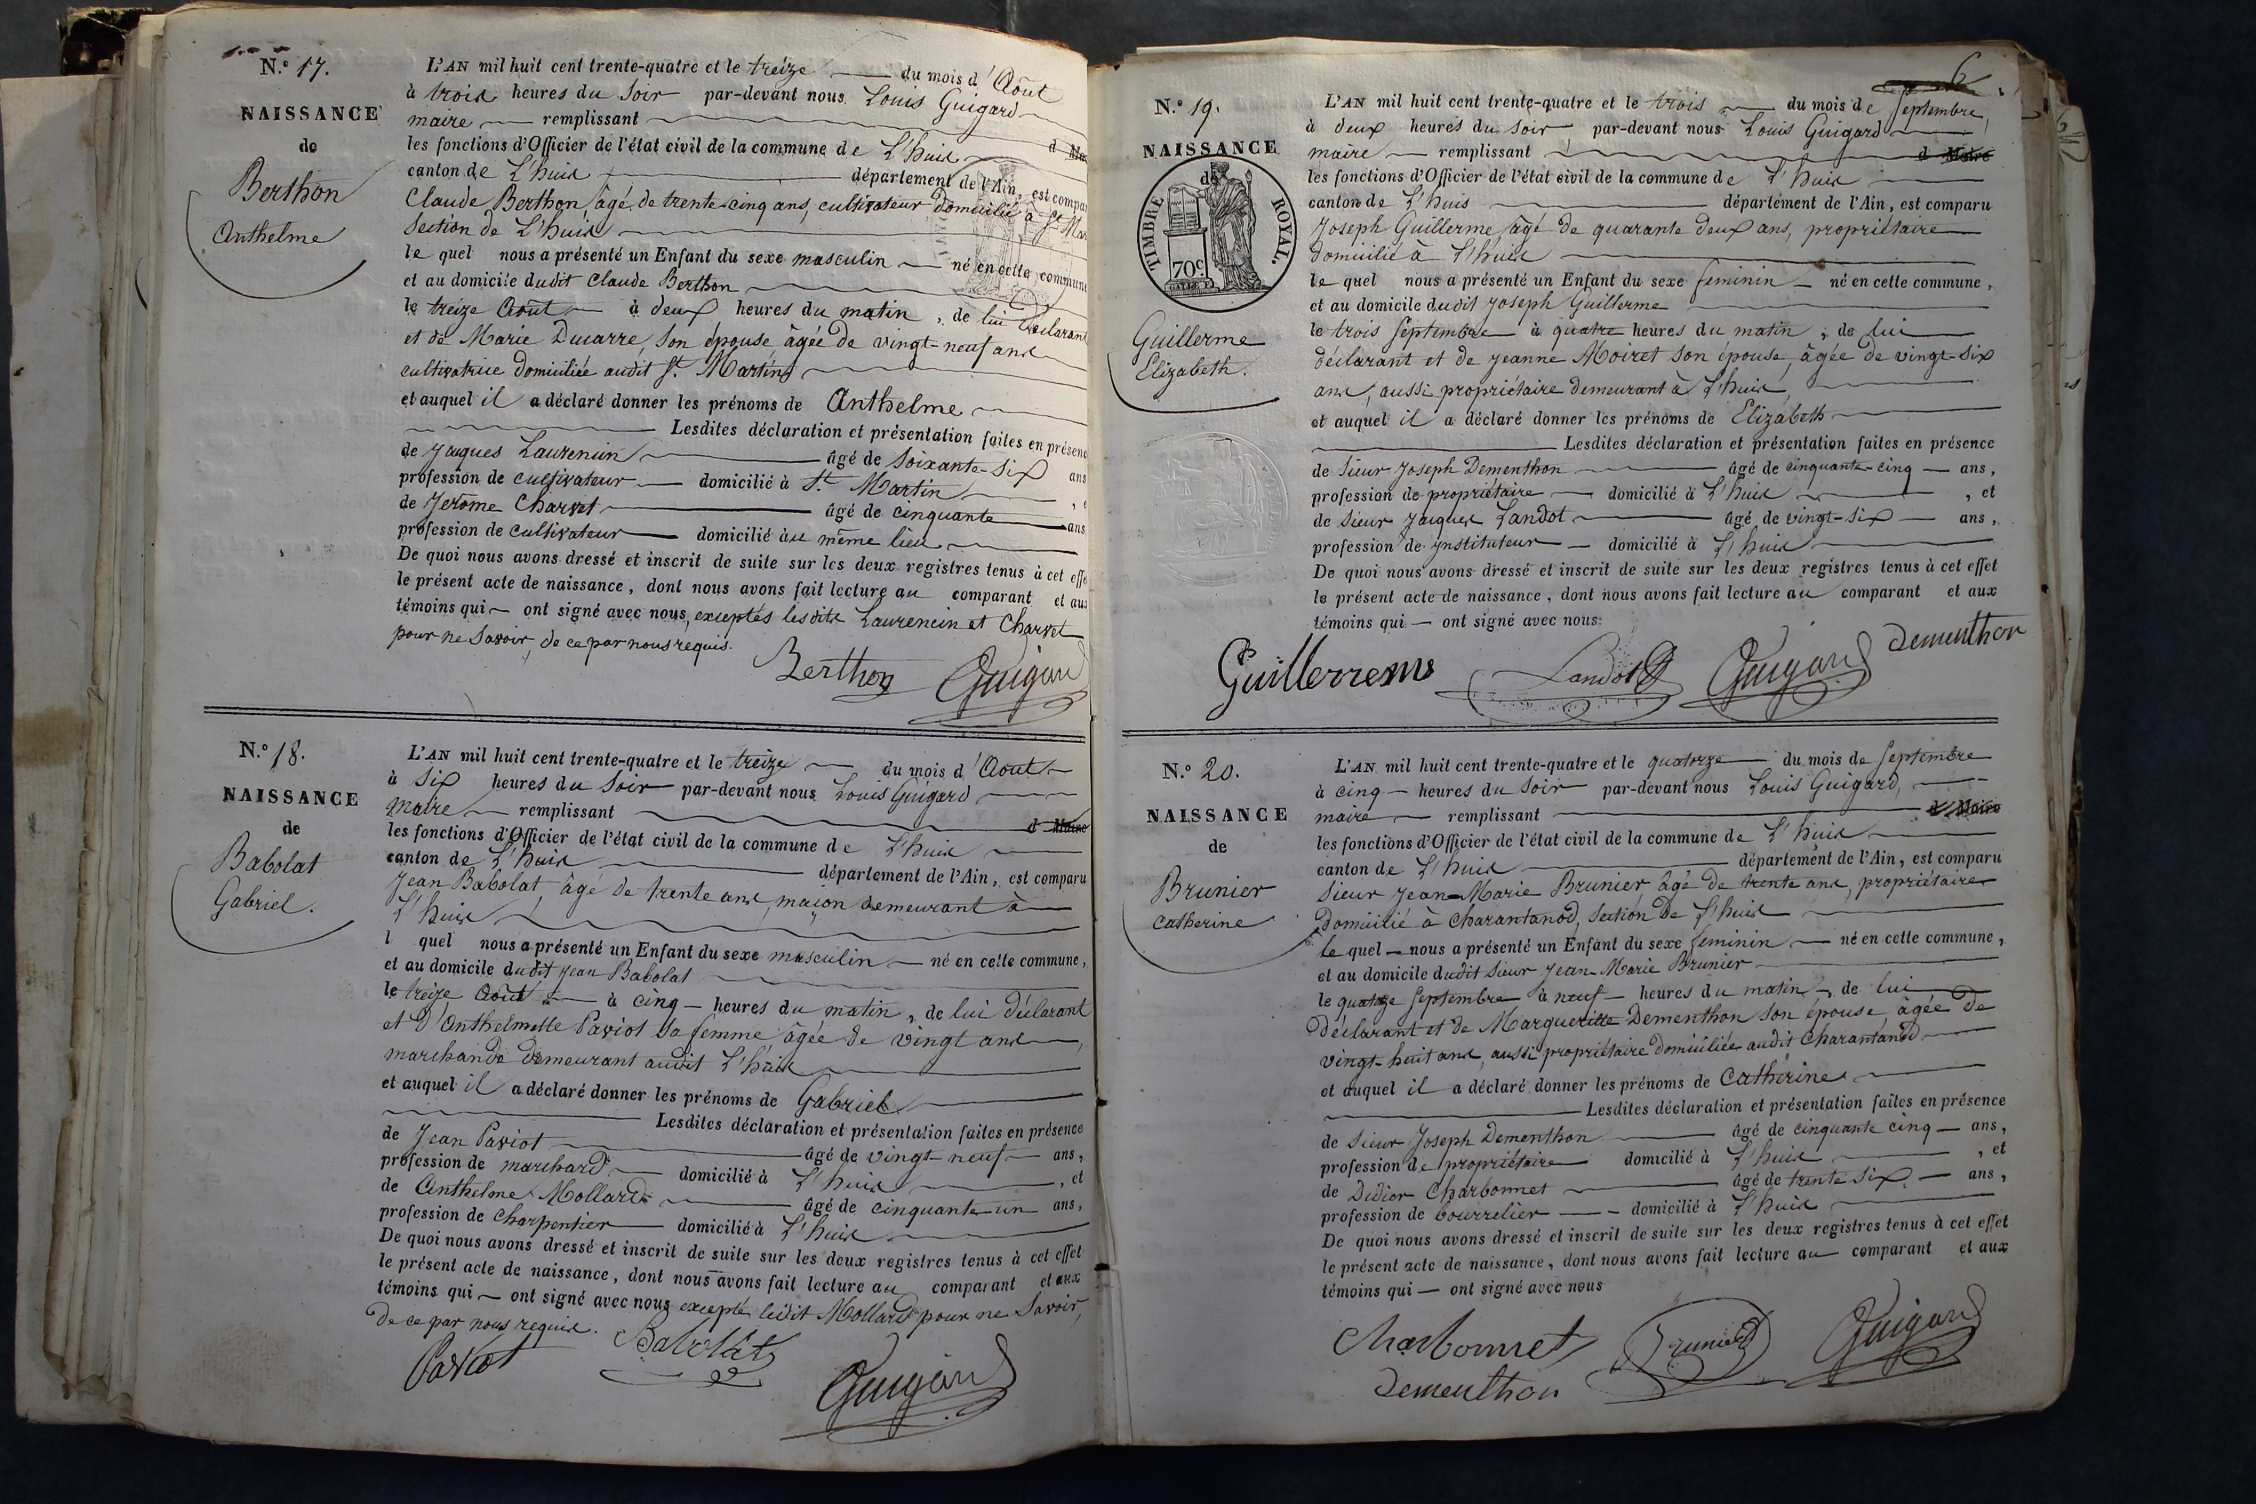 N.º 17.
NAISSANCE
de
Berthon
Anthelme
L'AN mil huit cent trente-quatre et le treize du mois d'Août
à trois heures du soir par-devant nous Louis Guigard
maire remplissant d
les fonctions d'Officier de l'état civil de la commune de L'huis
canton de L'huis département de l'Ain, est compar
Claude Berthon, âgé de trente-cinq ans, cultivateur domicilié à St Mar
section de L'huis
le quel nous a présenté un Enfant du sexe masculin né en cette commune
et au domicile dudit Claude Berthon
le treize Août à deux heures du matin, de lui déclarant
et de Marie Ducarre, son épouse âgée de vingt-neuf ans
cultivatrice domiciliée audit St. Martin
et auquel il a déclaré donner les prénoms de Anthelme
Lesdites déclaration et présentation faites en présenc
de Jaques Laurencin âgé de soixante-six ans
profession de cultivateur domicilié à St. Martin
de Jerôme Charvet âgé de cinquante ans
profession de cultivateur domicilié au même lieu
De quoi nous avons dressé et inscrit de suite sur les deux registres tenus à cet effe
le présent acte de naissance, dont nous avons fait lecture au comparant et aux
témoins qui ont signé avec nous, exceptés lesdits Laurencin et Charvet
pour ne savoir, de ce par nous requis.
Berthon Guigard
N.º 18.
NAISSANCE
de
Babolat
Gabriel.
L'AN mil huit cent trente-quatre et le treize du mois d'Août
à six heures du soir par-devant nous Louis Guigard
maire remplissant d Maire
les fonctions d'Officier de l'état civil de la commune de L'huis
canton de L'huis département de l'Ain, est comparu
Jean Babolat âgé de trente ans, maçon demeurant à
L'huis
l quel nous a présenté un Enfant du sexe masculin né en cette commune,
et au domicile dudit Jean Babolat
le treize Août à cinq heures du matin, de lui déclarant
et d'Anthelmette Paviot sa femme âgée de vingt ans,
marchande demeurant audit L'huis
et auquel il a déclaré donner les prénoms de Gabriel
Lesdites déclaration et présentation faites en présence
de Jean Paviot âgé de vingt-neuf ans,
profession de marchand domicilié à L'huis, et
de Anthelme Mollard âgé de cinquante-un ans,
profession de charpentier domicilié à L'huis
De quoi nous avons dressé et inscrit de suite sur les deux registres tenus à cet effet
le présent acte de naissance, dont nous avons fait lecture au comparant et aux
témoins qui ont signé avec nous excepté ledit Mollard pour ne savoir,
de ce par nous requis.
Paviot Babolat Guigard
6
N.º 19.
NAISSANCE
de
TIMBRE ROYAL.
70c
Guillerme
Elizabeth.
L'AN mil huit cent trente-quatre et le trois du mois de Septembre,
à deux heures du soir par-devant nous Louis Guigard
maire remplissant d Maire
les fonctions d'Officier de l'état civil de la commune de L'huis
canton de L'huis département de l'Ain, est comparu
Joseph Guillerme, âgé de quarante deux ans, propriétaire
domicilié à L'huis
le quel nous a présenté un Enfant du sexe feminin né en cette commune,
et au domicile dudit Joseph Guillerme
le trois Septembre à quatre heures du matin, de lui
déclarant et de Jeanne Moiret son épouse, âgée de vingt-six
ans, aussi propriétaire demeurant à L'huis,
et auquel il a déclaré donner les prénoms de Elizabeth
Lesdites déclaration et présentation faites en présence
de sieur Joseph Dementhon âgé de cinquante-cinq ans,
profession de propriétaire domicilié à L'huis, et
de sieur Jaques Landot âgé de vingt-six ans,
profession de Instituteur domicilié à L'huis
De quoi nous avons dressé et inscrit de suite sur les deux registres tenus à cet effet
le présent acte de naissance, dont nous avons fait lecture au comparant et aux
témoins qui ont signé avec nous.
Guillerme Landot Guigard Dementhon
N.º 20.
NAISSANCE
de
Brunier
Catherine
L'AN mil huit cent trente-quatre et le quatorze du mois de Septembre
à cinq heures du soir par-devant nous Louis Guigard,
maire remplissant d Maire
les fonctions d'Officier de l'état civil de la commune de L'huis
canton de L'huis département de l'Ain, est comparu
Sieur Jean-Marie Brunier âgé de trente ans, propriétaire
domicilié à Charantanod, section de L'huis
le quel nous a présenté un Enfant du sexe feminin né en cette commune,
et au domicile dudit sieur Jean-Marie Brunier
le quatorze Septembre à neuf heures du matin, de lui
déclarant et de Margueritte Dementhon son épouse, âgée de
vingt-huit ans, aussi propriétaire domiciliée audit Charantanod
et auquel il a déclaré donner les prénoms de Catherine
Lesdites déclaration et présentation faites en présence
de sieur Joseph Dementhon âgé de cinquante cinq ans,
profession de propriétaire domicilié à L'huis, et
de Didier Charbonnet âgé de trente six ans,
profession de bourrelier domicilié à L'huis
De quoi nous avons dressé et inscrit de suite sur les deux registres tenus à cet effet
le présent acte de naissance, dont nous avons fait lecture au comparant et aux
témoins qui ont signé avec nous
Charbonnet Brunier Guigard
Dementhon